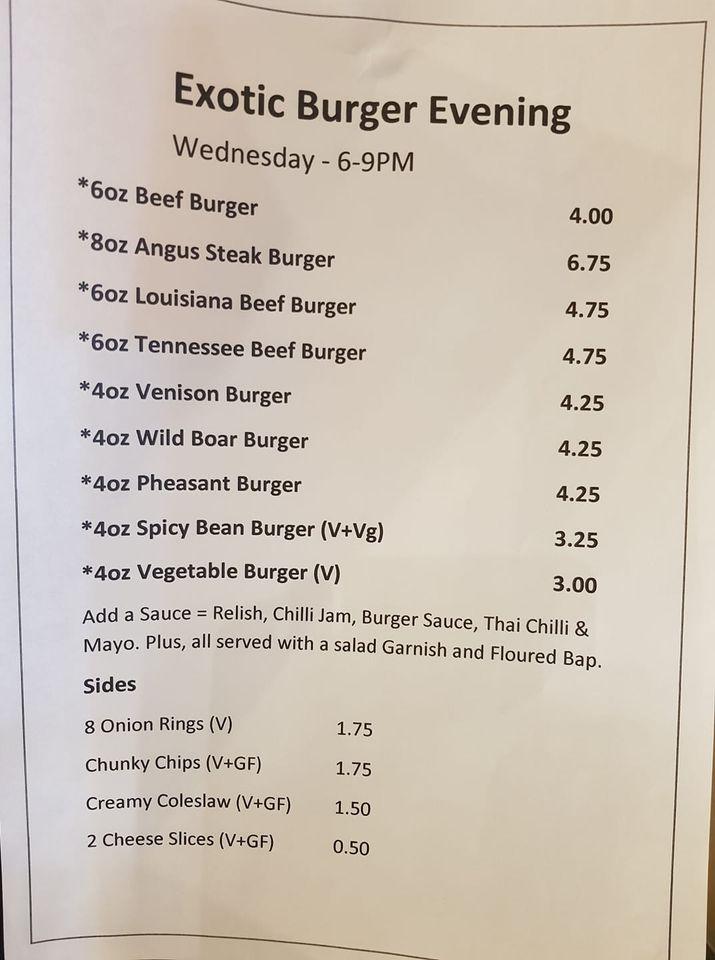 Exotic Burger Evening
Wednesday - 6-9PM
*6oz Beef Burger 4.00
*8oz Angus Steak Burger 6.75
*6oz Louisiana Beef Burger 4.75
*6oz Tennessee Beef Burger 4.75
*4oz Venison Burger 4.25
*4oz Wild Boar Burger 4.25
*4oz Pheasant Burger 4.25
*4oz Spicy Bean Burger (V+Vg) 3.25
*4oz Vegetable Burger (V) 3.00
Add a Sauce = Relish, Chilli Jam, Burger Sauce, Thai Chilli &
Mayo. Plus, all served with a salad Garnish and Floured Bap.
Sides
8 Onion Rings (V) 1.75
Chunky Chips (V+GF) 1.75
Creamy Coleslaw (V+GF) 1.50
2 Cheese Slices (V+GF) 0.50